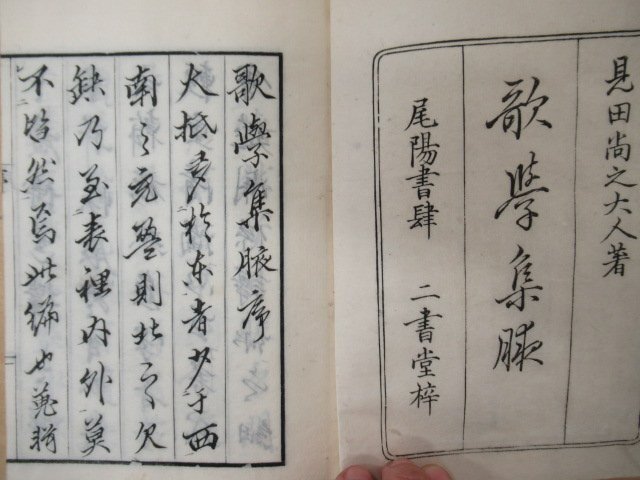 見田尚之大人著
歌学集腋
尾陽書肆 二書堂梓
歌學集腋序
大抵多於东者少于西
南之充盈則北之欠
缺乃至表裡内外莫
不皆然焉此編也蒐